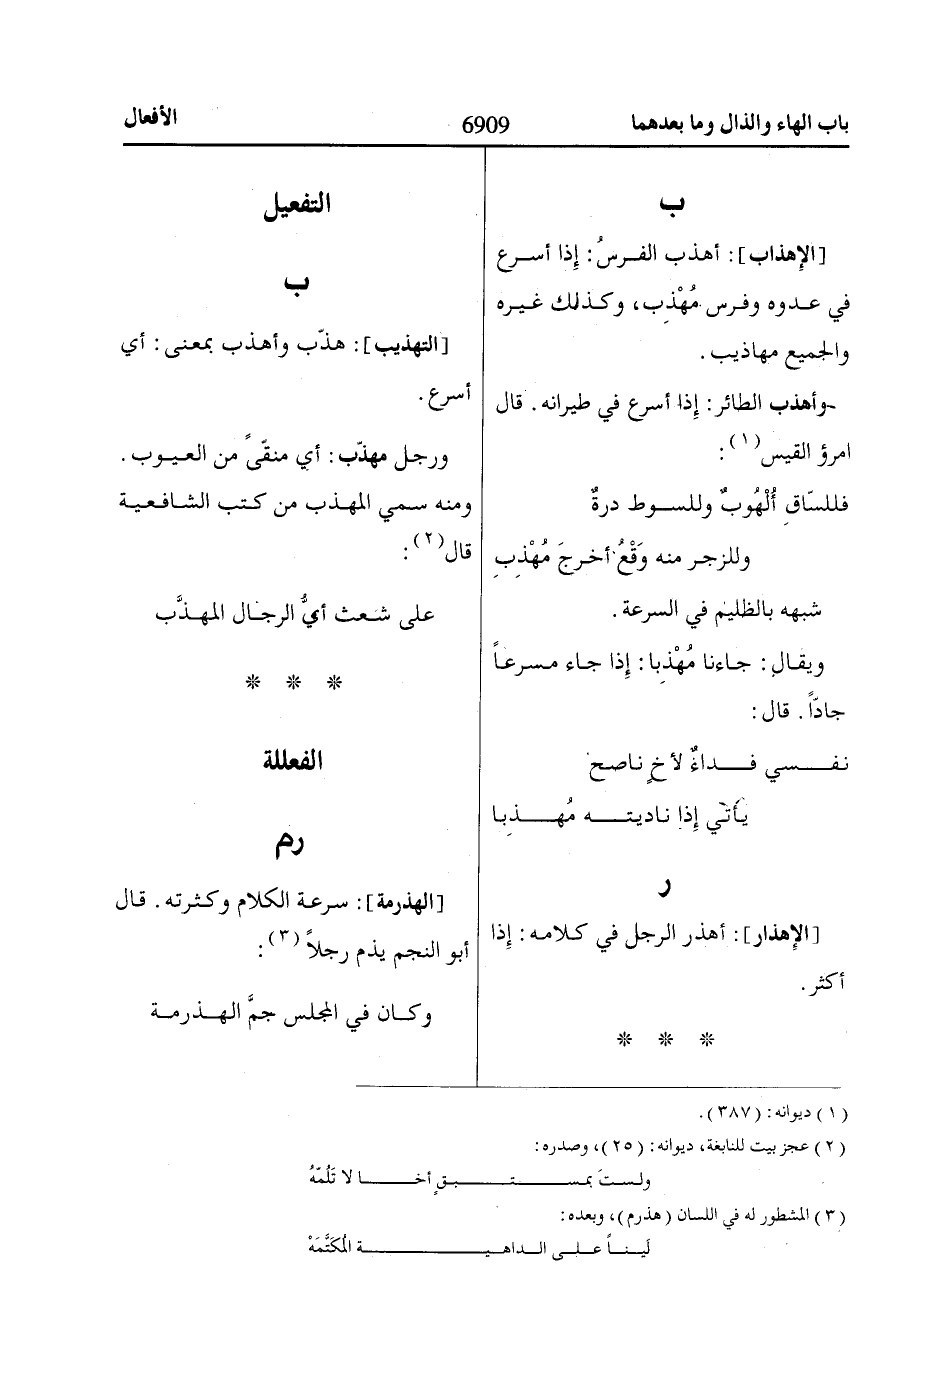 باب الهاء والذال وما بعدهما 6909 الأفعال
ب
[الإهذاب]: أهذب الفرسُ: إذا أسرع
في عدوه وفرس مُهْذِب، وكذلك غيره
والجميع مهاذيب.
وأهذب الطائر: إذا أسرع في طيرانه. قال
امرؤ القيس(١):
فللسّاقِ أُلْهُوبٌ وللسوط درةٌ
وللزجر منه وَقْعُ أخرجَ مُهْذِبِ
شبهه بالظليم في السرعة.
ويقال: جاءنا مُهْذِبا: إذا جاء مسرعاً
جادّاً. قال:
نفسي فداءٌ لأخٍ ناصح
يأتي إذا ناديته مُهذِبا
ر
[الإهذار]: أهذر الرجل في كلامه: إذا
أكثر.
* * *
التفعيل
ب
[التهذيب]: هذّب وأهذب بمعنى: أي
أسرع.
ورجل مهذّب: أي منقّىً من العيوب.
ومنه سمي المهذب من كتب الشافعية
قال(٢):
على شعث أيُّ الرجال المهذَّب
* * *
الفعللة
رم
[الهذرمة]: سرعة الكلام وكثرته. قال
أبو النجم يذم رجلاً(٣):
وكان في المجلس جمَّ الهذرمة
(١) ديوانه: (٣٨٧).
(٢) عجز بيت للنابغة، ديوانه: (٢٥)، وصدره:
ولستَ بمستبقٍ أخا لا تَلُمّهُ
(٣) المشطور له في اللسان (هذرم)، وبعده:
لَيناً على الداهية المُكَتَّمَهْ